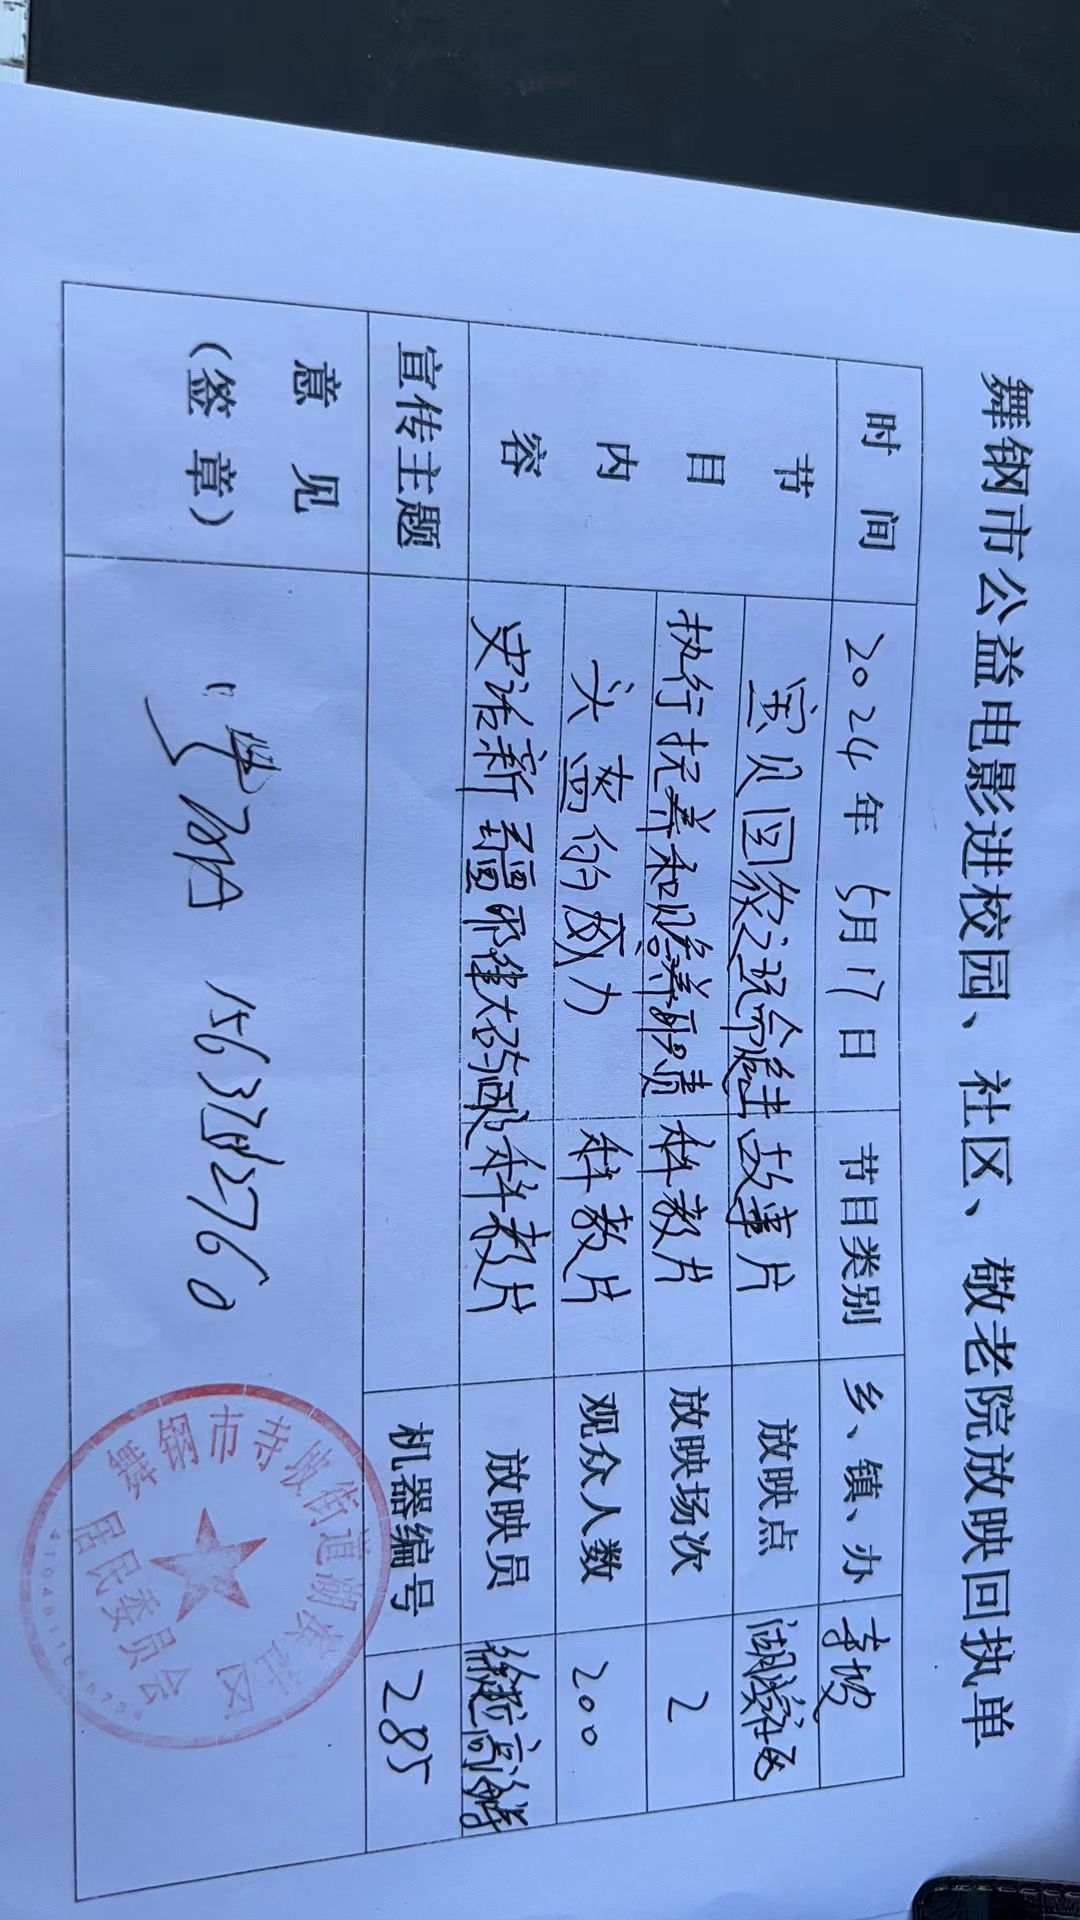 舞钢市公益电影进校园、社区、敬老院放映回执单
时 间 2024年5月17日 节目类别 乡、镇、办 寺坡
节目内容 宝贝回家之逃出 故事片 放映点 湖滨社区
执行抚养和赡养职责 科教片 放映场次 2
头盔的威力 科教片 观众人数 200
史话新疆 科教片 放映员 徐
宣传主题 机器编号 285
意 见
(签 章)
舞钢市寺坡街道湖滨社区
居民委员会